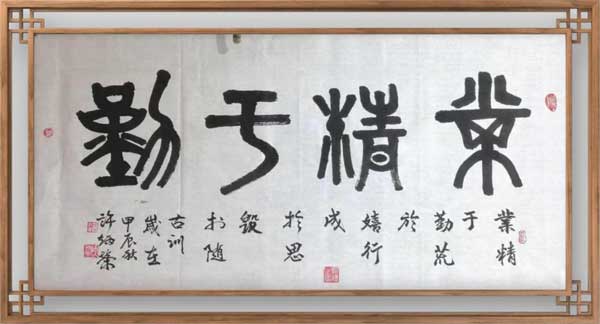 業精于勤
業精
于
勤荒
於
嬉行
成
於思
毀
於随
古訓
歲在
甲辰秋
許